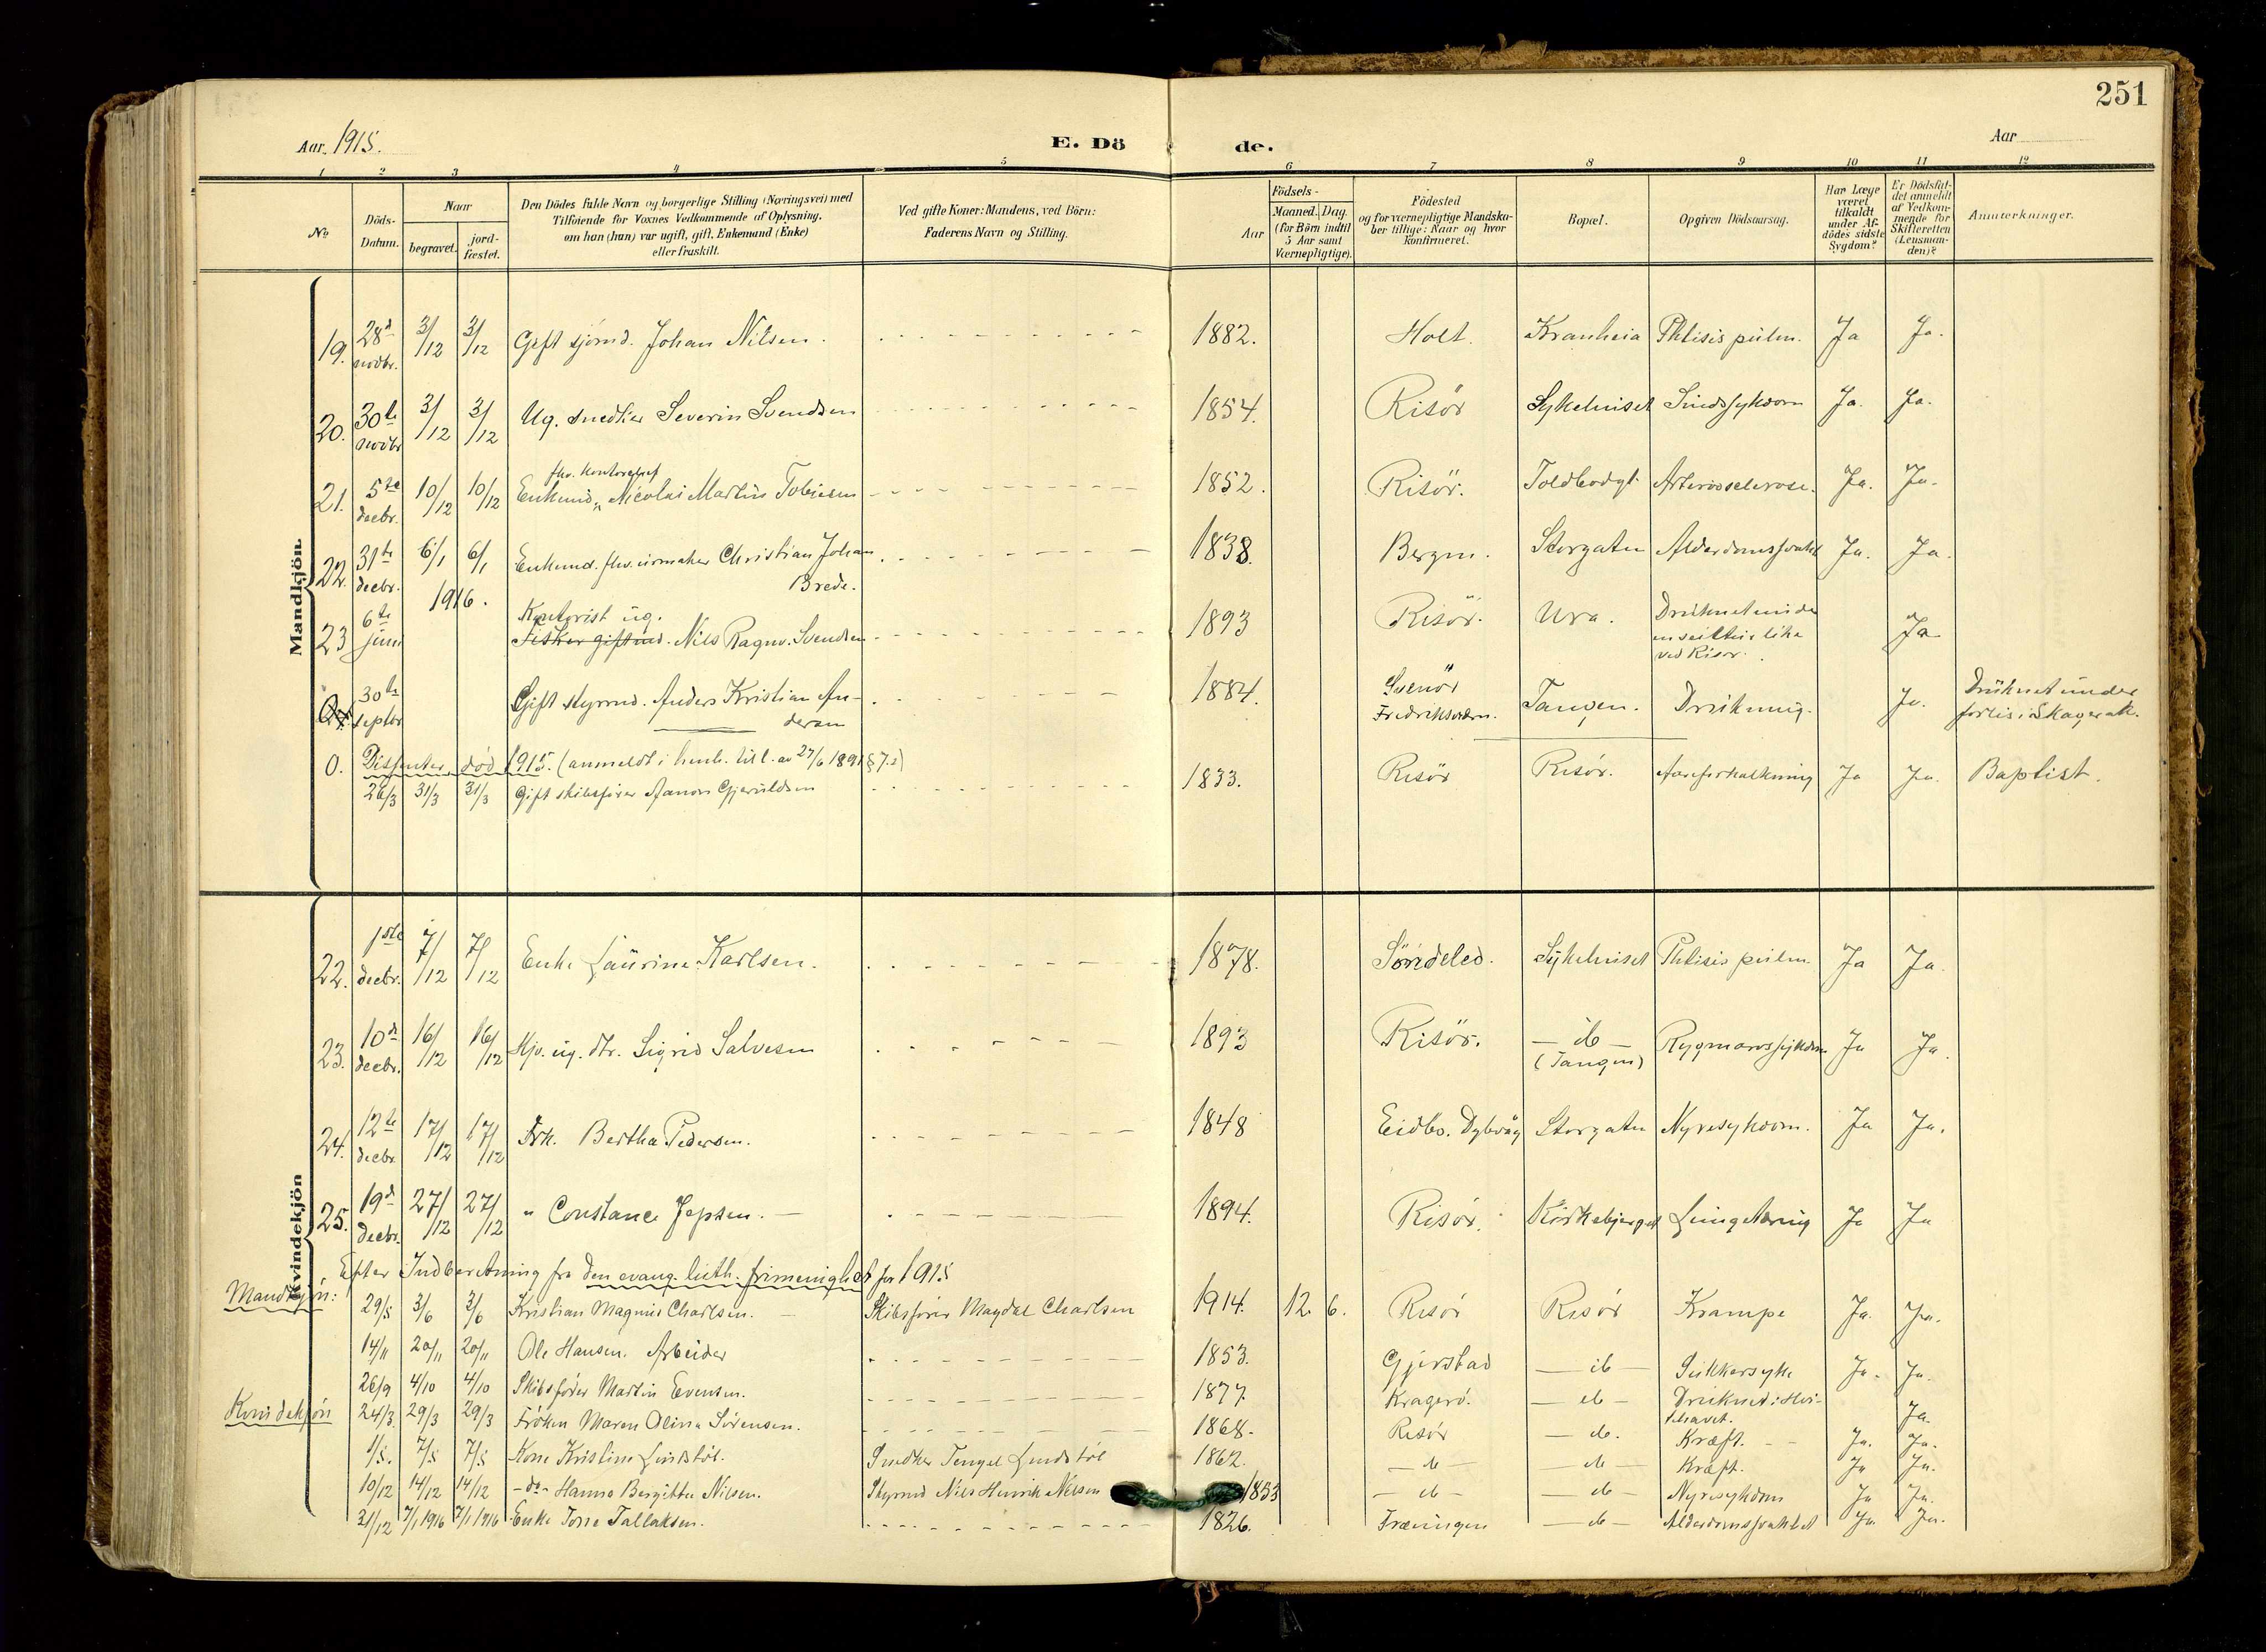 251
Aar 1915.
E. Dö
de.
Aar
1 2 3 4 5 6 7 8 9 10 11 12
No
Döds-Datum.
Naar
begravet.
jord-fæstet.
Den Dödes fulde Navn og borgerlige Stilling (Næringsvei) med
Tilföiende for Voxnes Vedkommende af Oplysning,
om han (hun) var ugift, gift, Enkemand (Enke)
eller fraskilt.
Ved gifte Koner: Mandens, ved Börn:
Faderens Navn og Stilling.
Födsels-
Aar
Maaned. Dag.
(for Börn indtil
5 Aar samt
Værnepligtige).
Födested
og for værnepligtige Mandska-
ber tillige: Naar og hvor
konfirmeret.
Bopæl.
Opgiven Dödsaarsag.
Har Læge
været
tilkaldt
under Af-
dödes sidste
Sygdom?
Er Dödsfal-
det anmeldt
af Vedkom-
mende for
Skifteretten
(Lensman-
den)?
Anmærkninger.
Mandkjön.
19. 28d novbr. 3/12 3/12 Gift sjömd. Johan Nilsen. 1882. Holt. Kranheia Phtisis pulm. Ja Ja.
20. 30te novbr 3/12 3/12 Ug. snedker Severin Svendsen 1854. Risör Sykehuset Sindssykdom Ja. Ja.
fhv. kontorchef
21. 5te decbr. 10/12 10/12 Enkemd. " Nicolai Martin Tobiesen 1852. Risör. Toldbodgt. Arteriosclerose. Ja. Ja.
22. 31te decbr. 6/1 6/1 Enkemd. fhv. urmaker Christian Johan 1838. Bergen. Storgaten Alderdomssvakh Ja. Ja.
1916. Brede.
Kontorist ug.
23 6te juni Fisker gift md. Nils Ragnv. Svendsen 1893 Risör. Ura. Druknet under
en seiltur like
ved Risör. Ja
24. 30te septbr Gift styrmd. Anders Kristian An-
dersen 1884. Svenör
Fredriksværn. Tangen. Drukning. Ja. Druknet under
forlis i Skagerak.
0. Dissenter död 1915. (anmeldt i henh. til l. av 27/6 1891 § 7.2)
26/3 31/3 31/3 Gift skibsförer Aanon Gjeruldsen 1833. Risör Risör. Aareforkalkning Ja Ja. Baptist.
Kvindekjön
22. 1ste decbr. 7/12 7/12 Enke Laurine Karlsen. 1878. Söndeled. Sykehuset Phtisis pulm. Ja Ja
23. 10d decbr. 16/12 16/12 Hjv. ug. dtr. Sigrid Salvesen 1893 Risör. — ib —
(Tangen) Rygmarvssykdom Ja Ja.
24. 12te decbr. 17/12 17/12 Frk. Bertha Pedersen. 1848 Eidbo. Dybvåg Storgaten Nyresykdom. Ja Ja.
25. 19d decbr. 27/12 27/12 " Constance Jepsen. 1894. Risör. Kirkebjerget Lungetæring Ja Ja
Efter Indberetning fra den evang. luth. frimenighet for 1915
Mandkjön:
29/5 3/6 3/6 Kristian Magnus Charlsen. Skibsförer Magdal Charlsen 1914. 12. 6. Risör Risör Krampe Ja. Ja.
14/11 20/11 20/11 Ole Hansen. Arbeider 1853. Gjerstad — ib — Sukkersyke Ja. Ja.
26/9 4/10 4/10 Skibsförer Martin Evensen. 1877. Kragerö. — ib — Druknet i Hvi-
tehavet. Ja.
Kvindekjön
24/3 29/3 29/3 Fröken Maren Olina Sörensen. 1868. Risör — ib. Kræft. Ja. Ja.
1/5. 7/5 7/5 Kone Kristine Lindstöl. Snedker Tengel Lindstöl 1862. — ib — — ib — Kræft. Ja Ja.
10/12 14/12 14/12 -do- Hanna Bergitte Nilsen. Styrmd Nils Henrik Nilsen 1853 — ib — — ib — Nyresykdom Ja Ja.
31/12 7/1 1916 7/1 1916 Enke Tone Tallaksen. 1826. — ib — Alderdomssvakhet Ja. Ja.